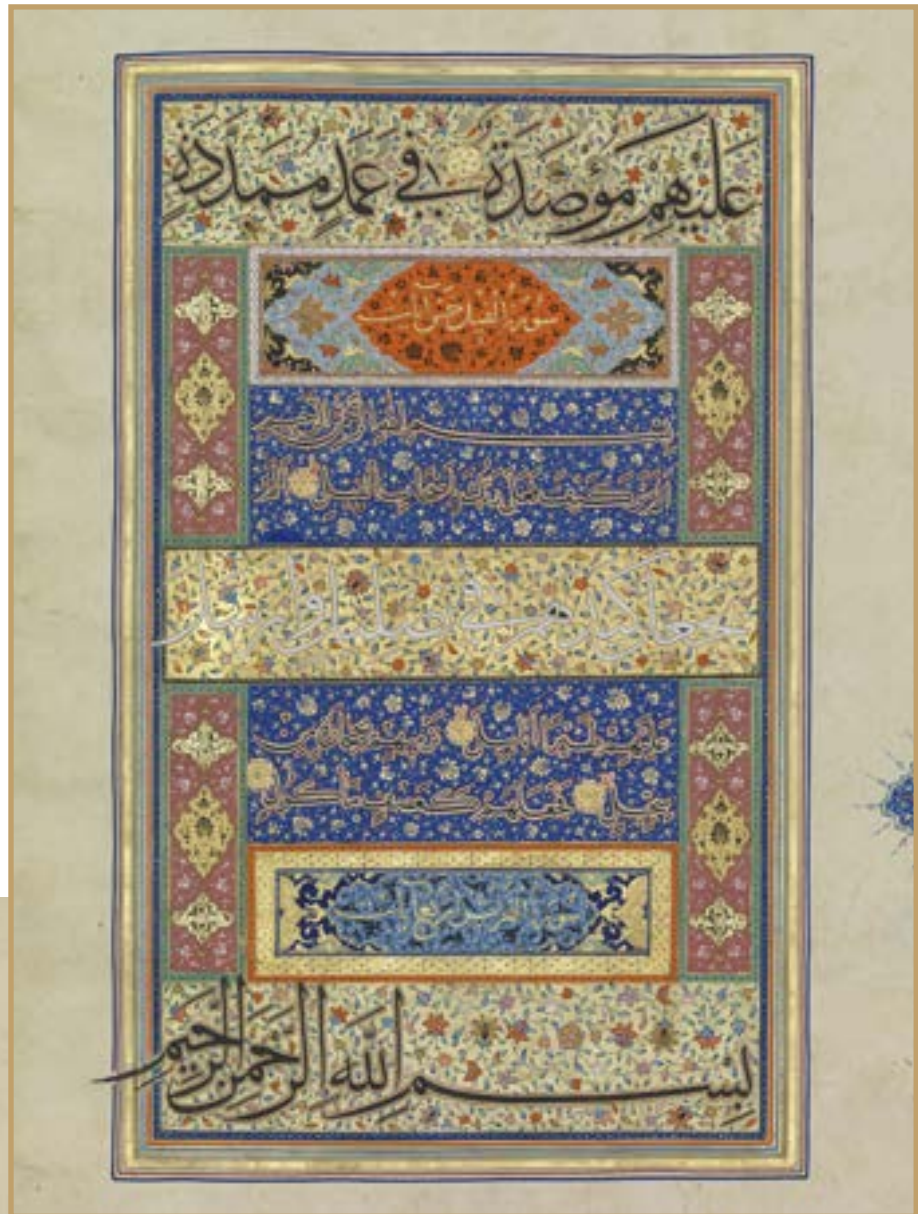 عَلَيْهِمْ مُؤْصَدَةٌ فِي عَمَدٍ مُمَدَّدَةٍ
سورة الفيل خمس آيات
بسم الله الرحمن الرحيم
الم تر كيف فعل ربك باصحاب الفيل الم
يجعل كيدهم في تضليل وارسل
عليهم طيرا ابابيل ترميهم بحجارة من
سجيل فجعلهم كعصف ماكول
سورة اربع آيات
بِسْمِ اللَّهِ الرَّحْمَنِ الرَّحِيمِ